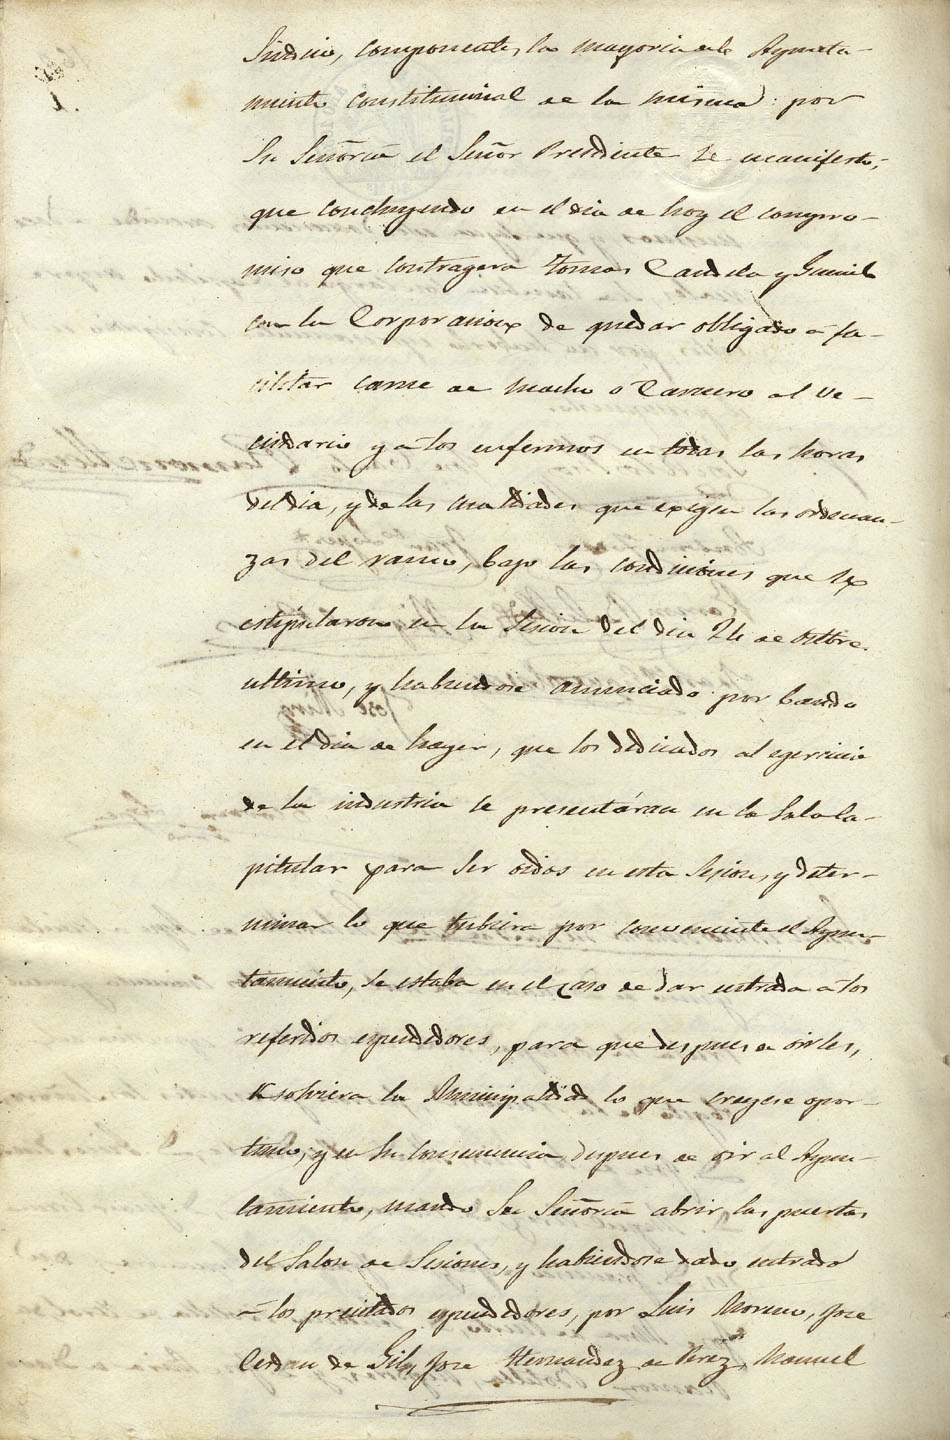 Sindico, componentes la mayoria de le Ayunta-
miento constitucional de la misma: por
Su Señoria el Señor Presidente se manifesto,
que concluyendo en el dia de hoy el compro-
miso que contragera Tomas Candela y
con la Corporacion de quedar obligado a fa-
cilitar carne de macho o Carnero al ve-
cindario y a los enfermos en todas las horas
del dia, y de las cualidades que exigen las ordenan-
zas del ramo, bajo las condiciones que se
estipularon en la Sesion del dia 24 de Octbre.
ultimo, y habiendose anunciado por bando
en el dia de hayer, que los dedicados al egercicio
de la industria se presentáran en la Sala Ca-
pitular para ser oidos en esta Sesion, y deter-
minar lo que tubiera por conveniente el Ayun-
tamiento, se estaba en el caso de dar entrada a los
referidos espendedores, para que despues de oirles,
resolviera la Municipalidad lo que creyese opor-
tuno; y en su consecuencia despues de oir al Ayun-
tamiento, mando Su Señoria abrir las puertas
del Salon de Sesiones, y habiendose dado entrada
a los precitados espendedores, por Luis Moreno, Jose
Cerdan de Gil, Jose Hernandez de Perez, Manuel